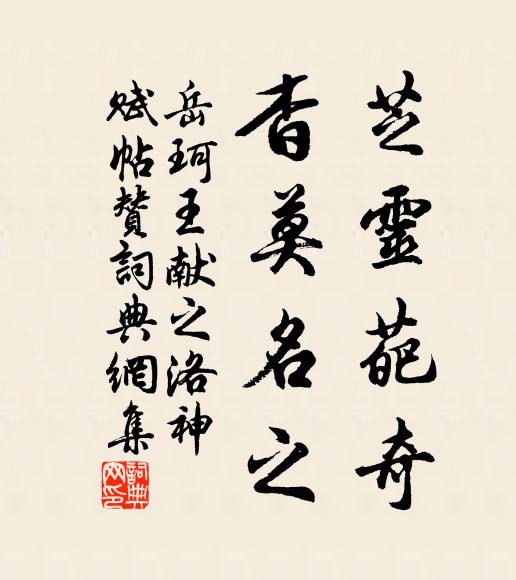 芝靈葩奇
杳莫名之
岳珂王献之洛神
赋帖贊詞典網集
詞典网印